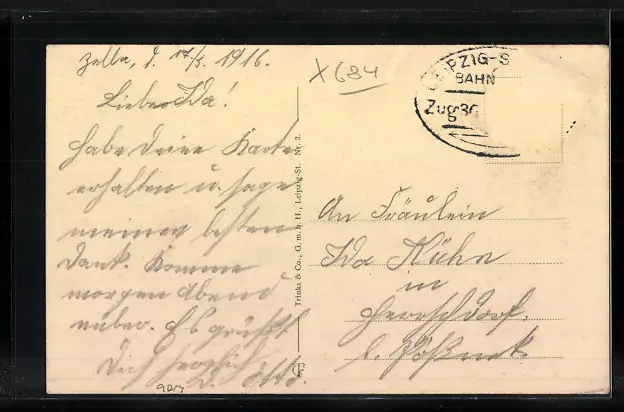 Zella, d. 17/3. 1916.
Liebe Ida!
habe Deine Karte
erhalten u. sage
meinen besten
Dank. Komme
morgen Abend
rüber. Es grüßt
Dich herzlich
D. Otto.
X 684
LEIPZIG-S
BAHN
Zug 30
Trinks & Co., G. m. b. H., Leipzig-St. Nr. 2.
An Fräulein
Ida Kühn
in
b. Pößneck.